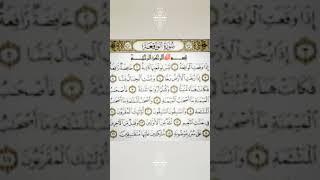 سُورَةُ الوَاقِعَةِ
بِسْمِ اللَّهِ الرَّحْمَٰنِ الرَّحِيمِ
إِذَا وَقَعَتِ الْوَاقِعَةُ ١ لَيْسَ لِوَقْعَتِهَا كَاذِبَةٌ ٢ خَافِضَةٌ رَّافِعَةٌ ٣
إِذَا رُجَّتِ الْأَرْضُ رَجًّا ٤ وَبُسَّتِ الْجِبَالُ بَسًّا ٥
فَكَانَتْ هَبَاءً مُّنبَثًّا ٦ وَكُنتُمْ أَزْوَاجًا ثَلَاثَةً ٧ فَأَصْحَٰبُ
الْمَيْمَنَةِ مَا أَصْحَٰبُ الْمَيْمَنَةِ ٨ وَأَصْحَٰبُ الْمَشْـَٔمَةِ مَا أَصْحَٰبُ
الْمَشْـَٔمَةِ ٩ وَالسَّٰبِقُونَ السَّٰبِقُونَ ١٠ أُولَٰئِكَ الْمُقَرَّبُونَ ١١
فِي جَنَّٰتِ النَّعِيمِ ١٢ ثُلَّةٌ مِّنَ الْأَوَّلِينَ ١٣ وَقَلِيلٌ مِّنَ الْآخِرِينَ ١٤
عَلَىٰ سُرُرٍ مَّوْضُونَةٍ ١٥ مُّتَّكِـِٔينَ عَلَيْهَا مُتَقَٰبِلِينَ ١٦